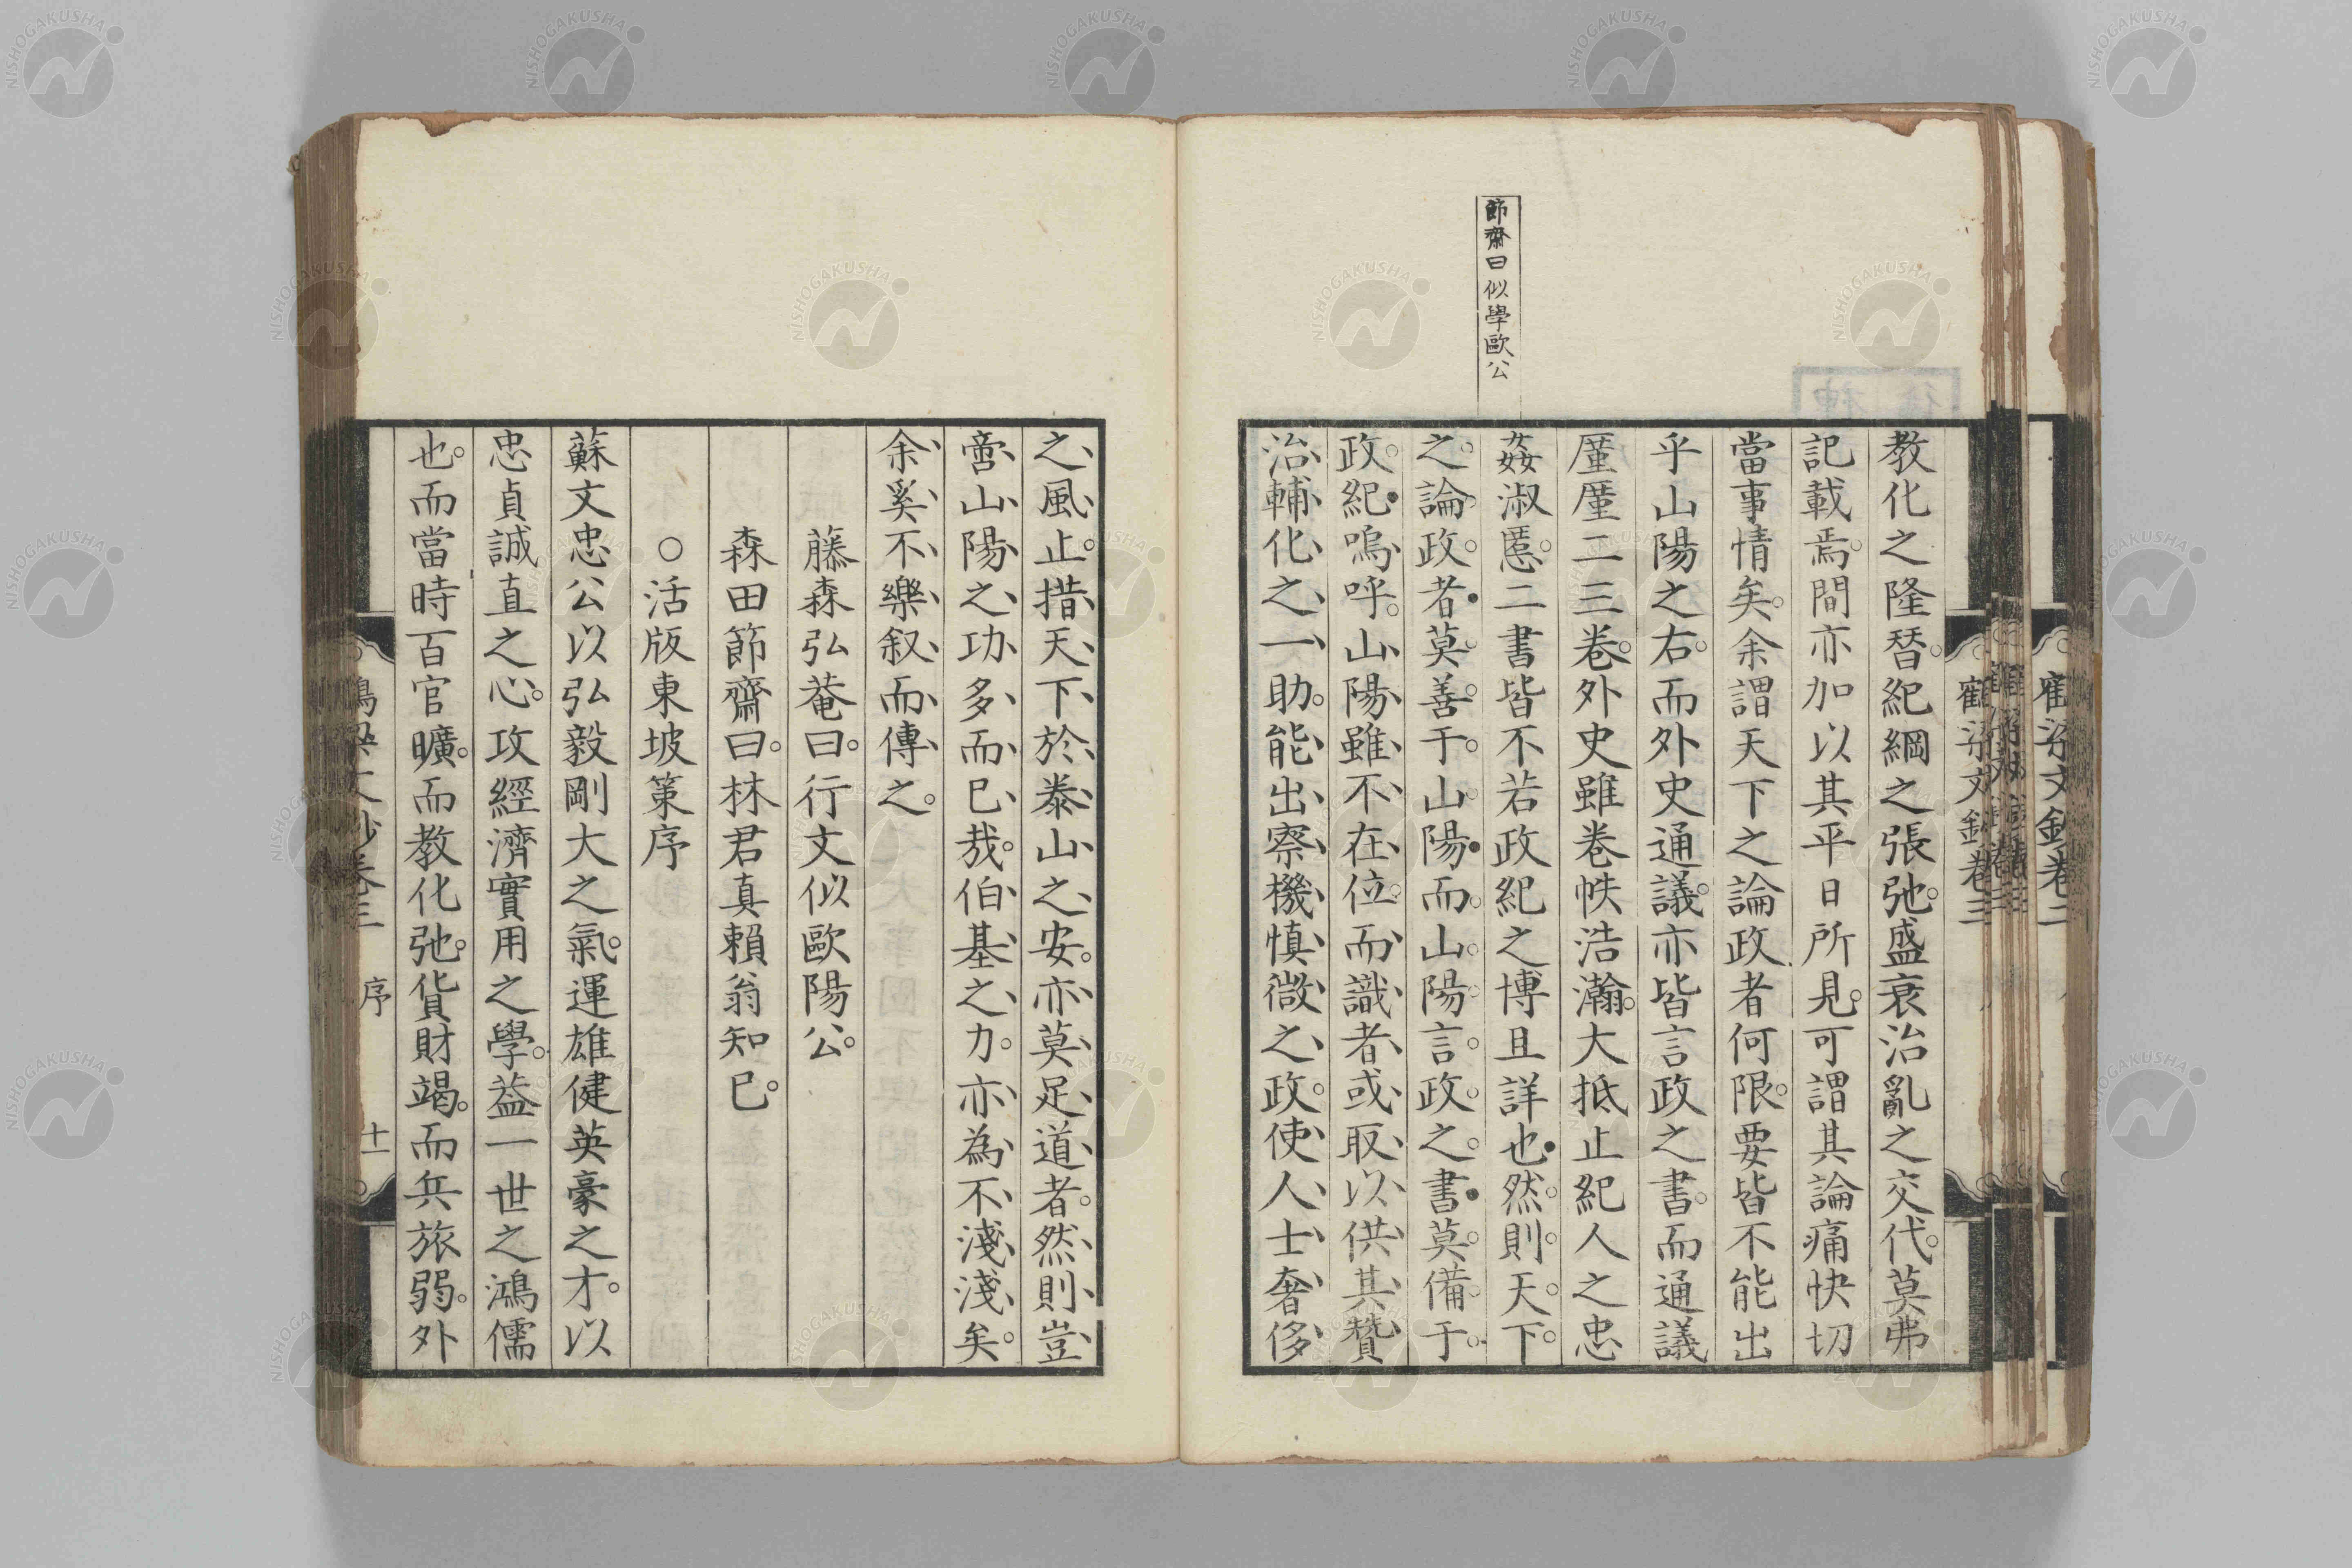 節齋曰似學歐公
教化之隆朁。紀綱之張弛。盛衰治亂之交代。莫弗
記載焉。間亦加以其平日所見。可謂其論痛快切
當事情矣。余謂天下之論政者何限。要皆不能出
乎山陽之右。而外史通議。亦皆言政之書。而通議
厪厪二三卷。外史雖卷帙浩瀚。大抵止紀人之忠
姦淑慝。二書皆不若政紀之博且詳也。然則天下
之論政者。莫善于山陽。而山陽言政之書。莫備于
政紀。嗚呼。山陽雖不在位。而識者或取以供其贊
治輔化之一助。能出察機慎微之政。使人士奢侈
之風止。措天下於泰山之安。亦莫足道者。然則豈
啻山陽之功多而已哉。伯基之力。亦為不淺淺矣。
余奚不樂叙而傳之。
藤森弘菴曰。行文似歐陽公。
森田節齋曰。林君真賴翁知已。
○活版東坡策序
蘇文忠公以弘毅剛大之氣。運雄健英豪之才。以
忠貞誠直之心。攻經濟實用之學。葢一世之鴻儒
也。而當時百官曠。而教化弛。貨財竭。而兵旅弱。外
鶴梁文鈔卷三 序 十一
鶴梁文鈔卷三
NISHOGAKUSHA